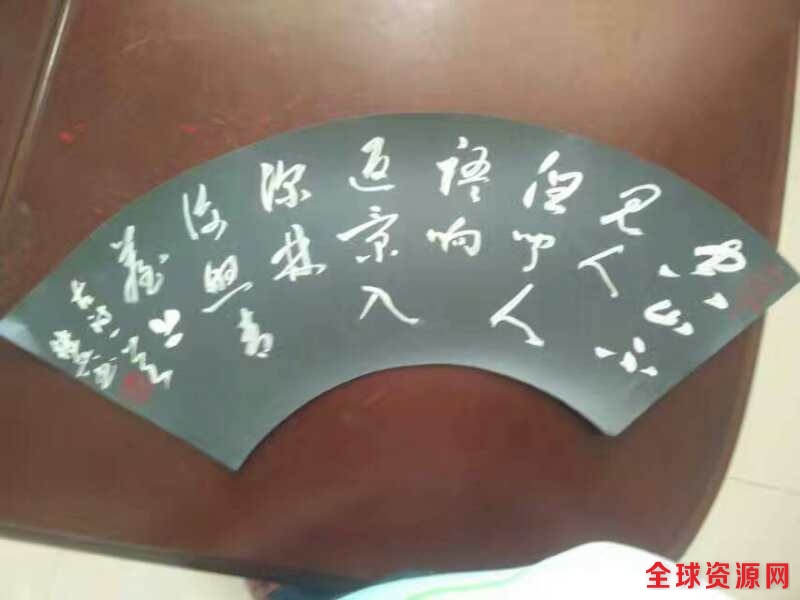 空山不
见人
但闻人
語响
返景入
深林
復照青
苔上
全球资源网